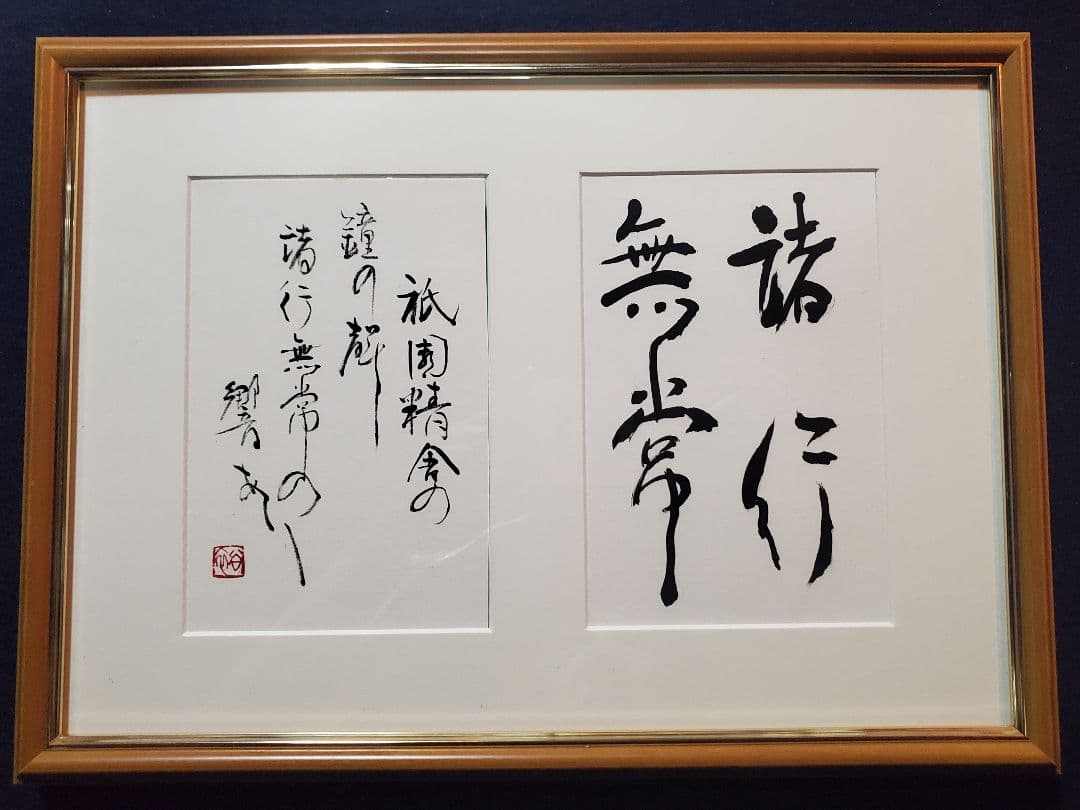 諸行
無常
祇園精舎の
鐘の聲
諸行無常の
響あり